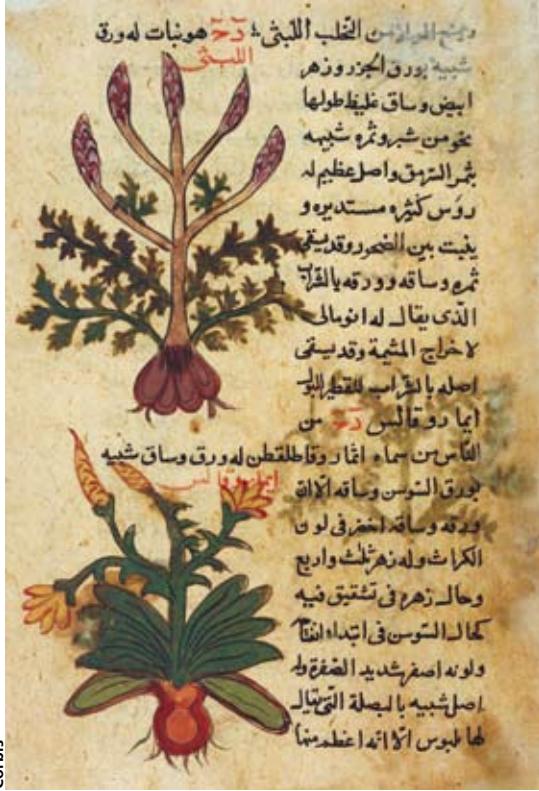 من الثعلب اللبثى ⁘ دٓحٓ هو نبات له ورق
اللبثى
شبيه بورق الجزر وزهر
ابيض وساق غليظ طولها
نحو من شبر وثمره شبيهه
بثمر السرمق واصل عظيم له
روس كثيره مستديره و
ينبت بين الصخور وقد يسقى
ثمره وساقه وورقه بالشراب
الذى يقال له انومالى
لاخراج المشيمة وقد يسقى
اصله بالشراب للقطير البول
ايمارو قالس دٓحٓ من
الناس من سماه ايماروقاطلقطن له ورق وساق شبيه
ايمارو قالس
بورق السوسن وساقه الا ان
ورقه وساقه اخضر فى لون
الكراث وله زهر ثلث واربع
وحال زهره فى تشقيق فيه
كحال السوسن فى ابتداء انفتاح
ولونه اصفر شديد الصفرة وله
اصل شبيه بالبصلة التى يقال
لها بلبوس الا انه اعظم منها
Corbis